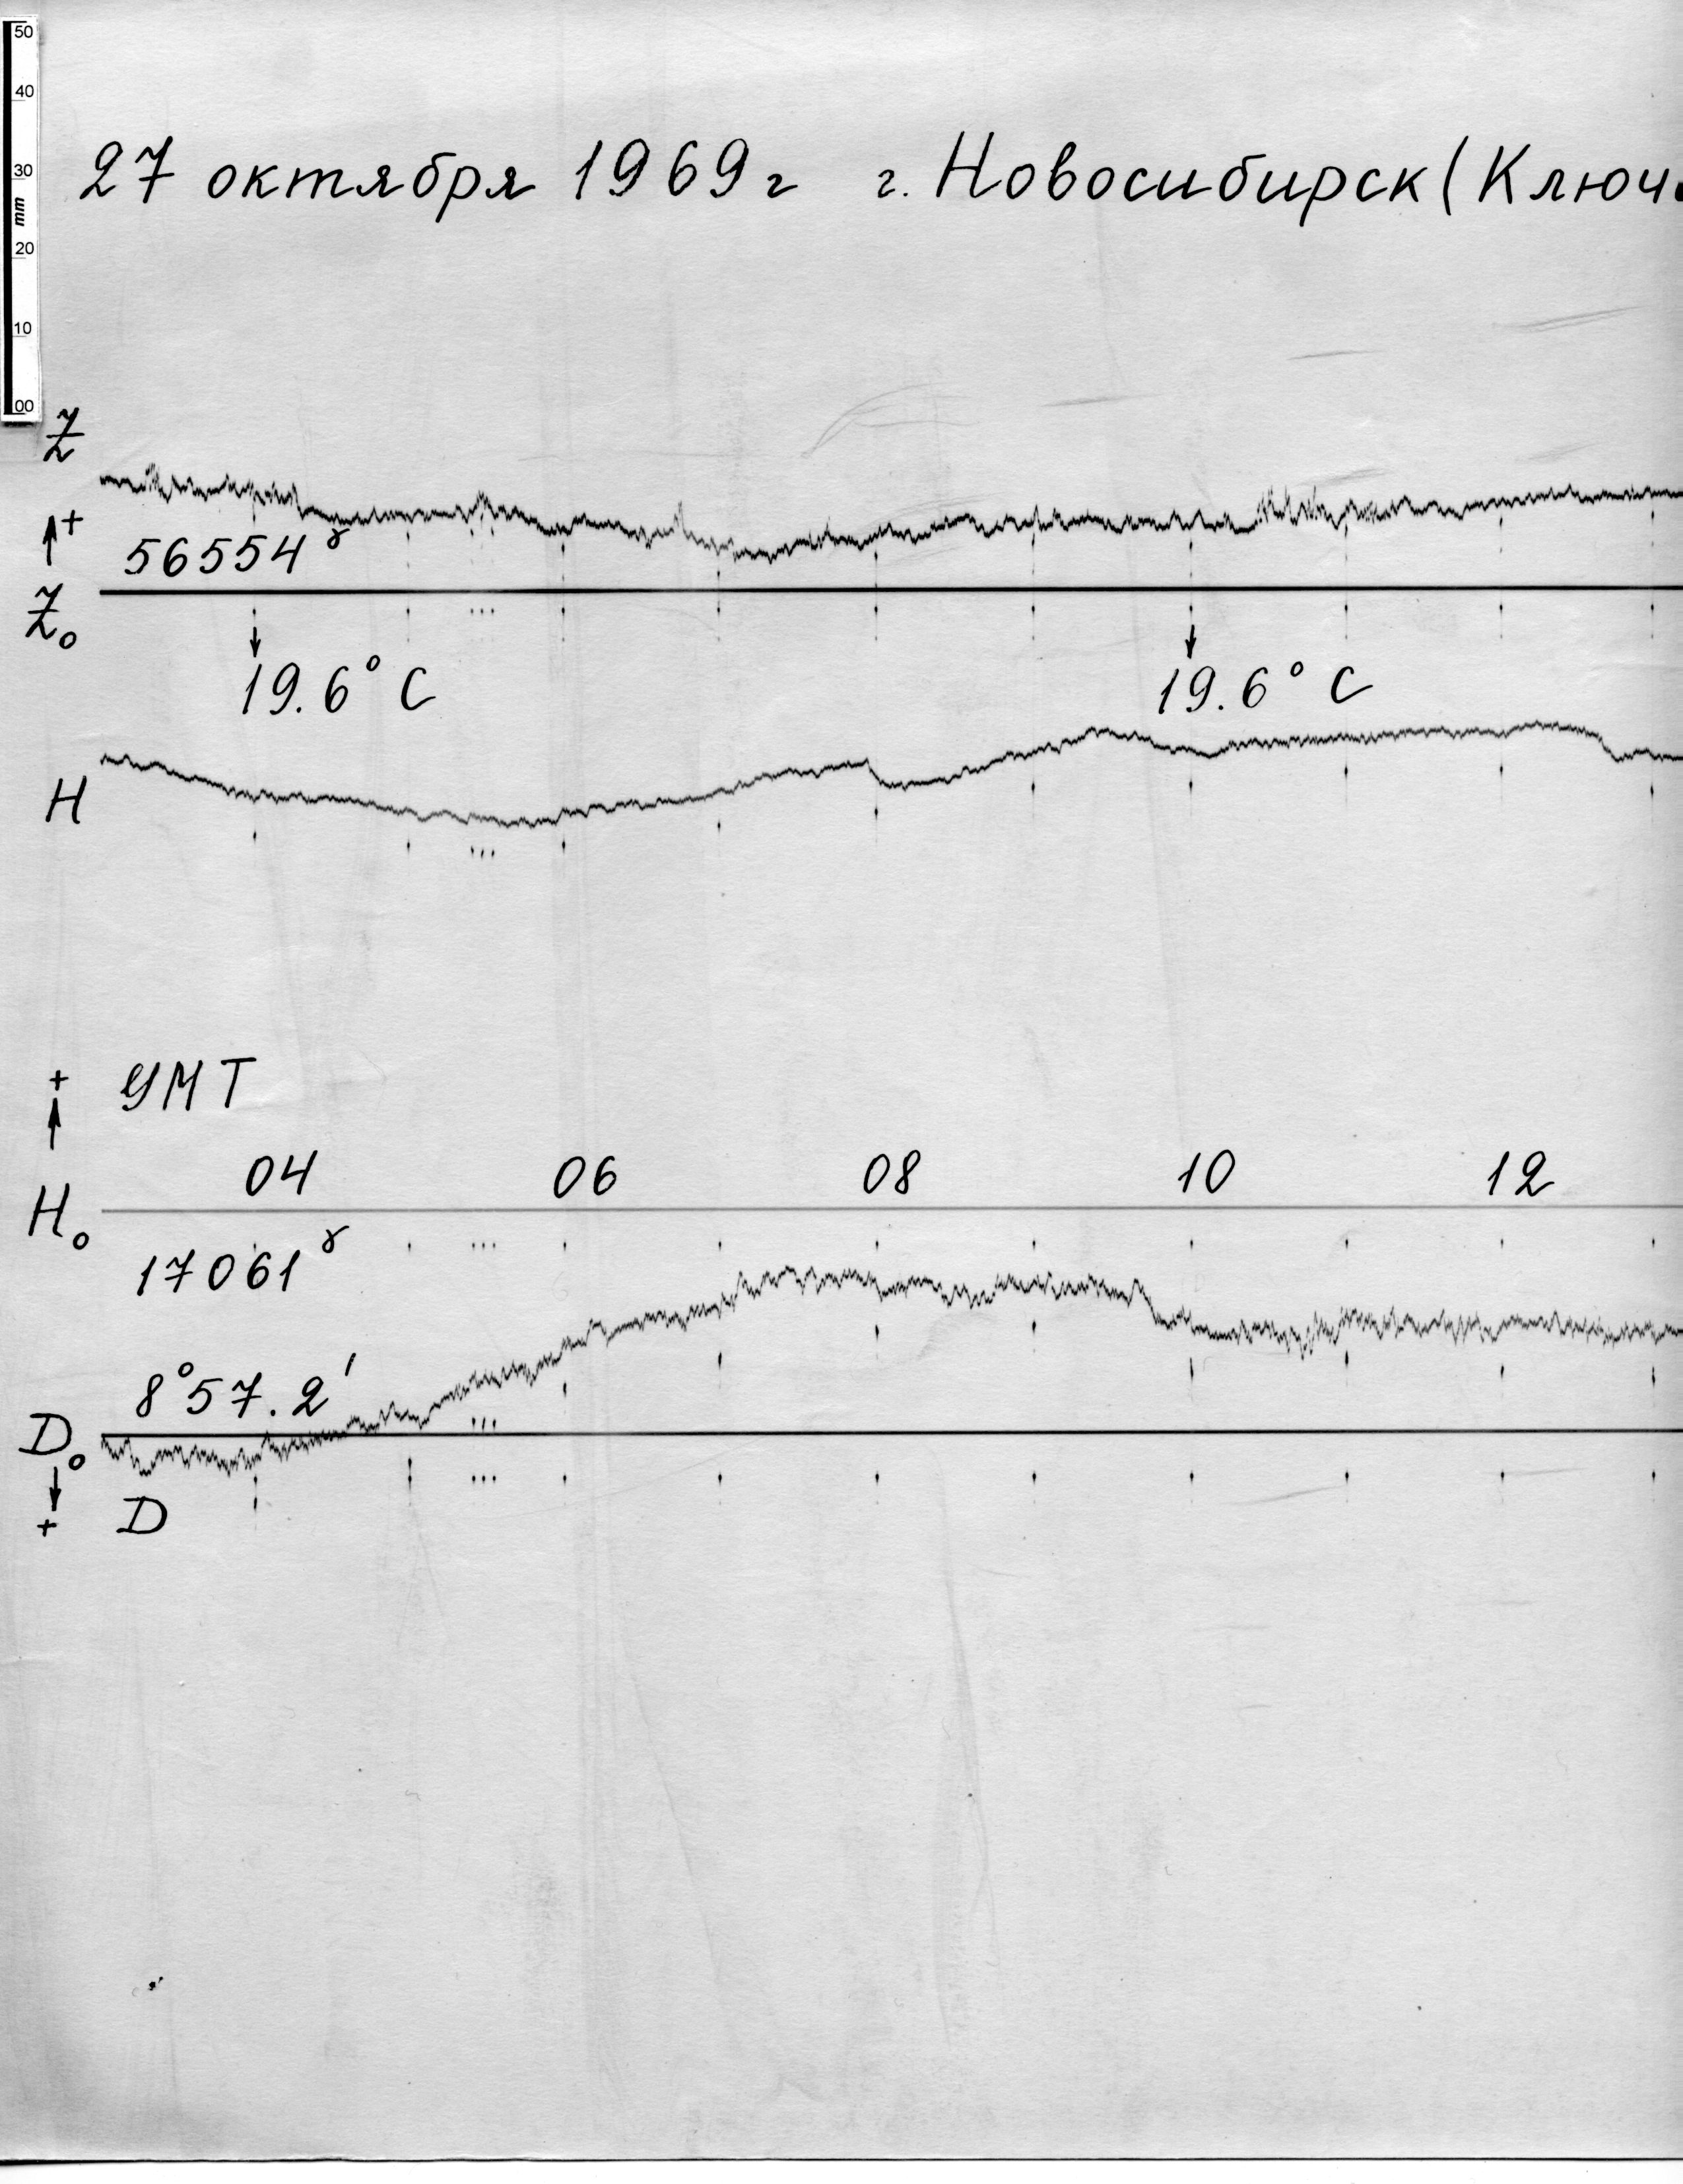 50
40
30
mm
20
10
00
27 октября 1969 г г. Новосибирск (Ключ
Z
+
56554 γ
Z₀
19.6° C 19.6° C
H
+ УМТ
04 06 08 10 12
H₀
17061 γ
8° 57.2'
D₀
+ D